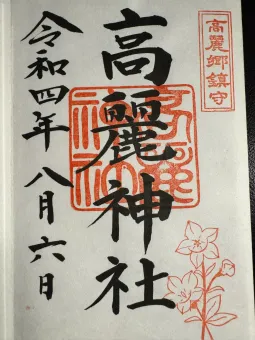 高麗郷鎮守
高麗神社
令和四年八月六日